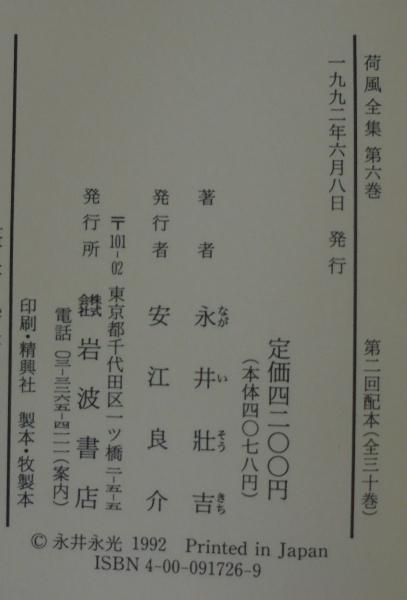 荷風全集 第六巻
第二回配本(全三十巻)
一九九二年六月八日 発行
定価四二〇〇円
(本体四〇七八円)
著者 永井壯吉
なが い そう きち
発行者 安江良介
〒101-02 東京都千代田区一ツ橋二-五-五
発行所 株式会社 岩波書店
電話 〇三-三二六五-四一一一(案内)
印刷・精興社 製本・牧製本
© 永井永光 1992 Printed in Japan
ISBN 4-00-091726-9